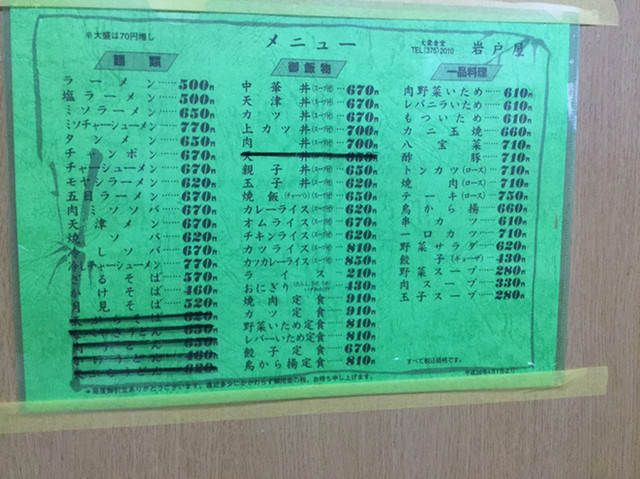 ※大盛は70円増し
メニュー
大衆食堂
岩戸屋
TEL(376)2010
麺類
ラーメン 500円
塩ラーメン 500円
ミソラーメン 650円
ミソチャーシューメン 770円
タンメン 650円
チャンポン 670円
チャーシューメン 670円
モヤシラーメン 620円
五目ラーメン 670円
肉ミソソバ 670円
天津メン 670円
焼ソバ 620円
冷しソバ 670円
冷しチャーシューメン 770円
ざるそば 570円
かけそば 460円
月見そば 520円
620円
650円
460円
620円
御飯物
中華丼(スープ付) 670円
天津丼(スープ付) 670円
カツ丼(スープ付) 670円
上カツ丼(スープ付) 700円
肉丼(スープ付) 700円
天丼 650円
親子丼(スープ付) 650円
玉子丼(スープ付) 620円
焼飯(チャーハン)(スープ付) 650円
カレーライス(スープ付) 620円
オムライス(スープ付) 670円
チキンライス(スープ付) 620円
カツライス(スープ付) 810円
カツカレーライス(スープ付) 850円
ライス 210円
おにぎり 430円
焼肉定食 910円
カツ定食 910円
野菜いため定食 810円
レバーいため定食 810円
餃子定食 670円
鳥から揚定食 810円
一品料理
肉野菜いため 610円
レバニラいため 610円
もついため 610円
カニ玉焼 660円
八宝菜 710円
酢豚 710円
トンカツ(ロース) 710円
焼肉(ロース) 710円
テーキ(ロース) 750円
鳥から揚 660円
串カツ 610円
一口カツ 710円
野菜サラダ 620円
餃子(ギョーザ) 430円
野菜スープ 280円
肉スープ 330円
玉子スープ 280円
すべて税込価格です。
平成26年4月1日より